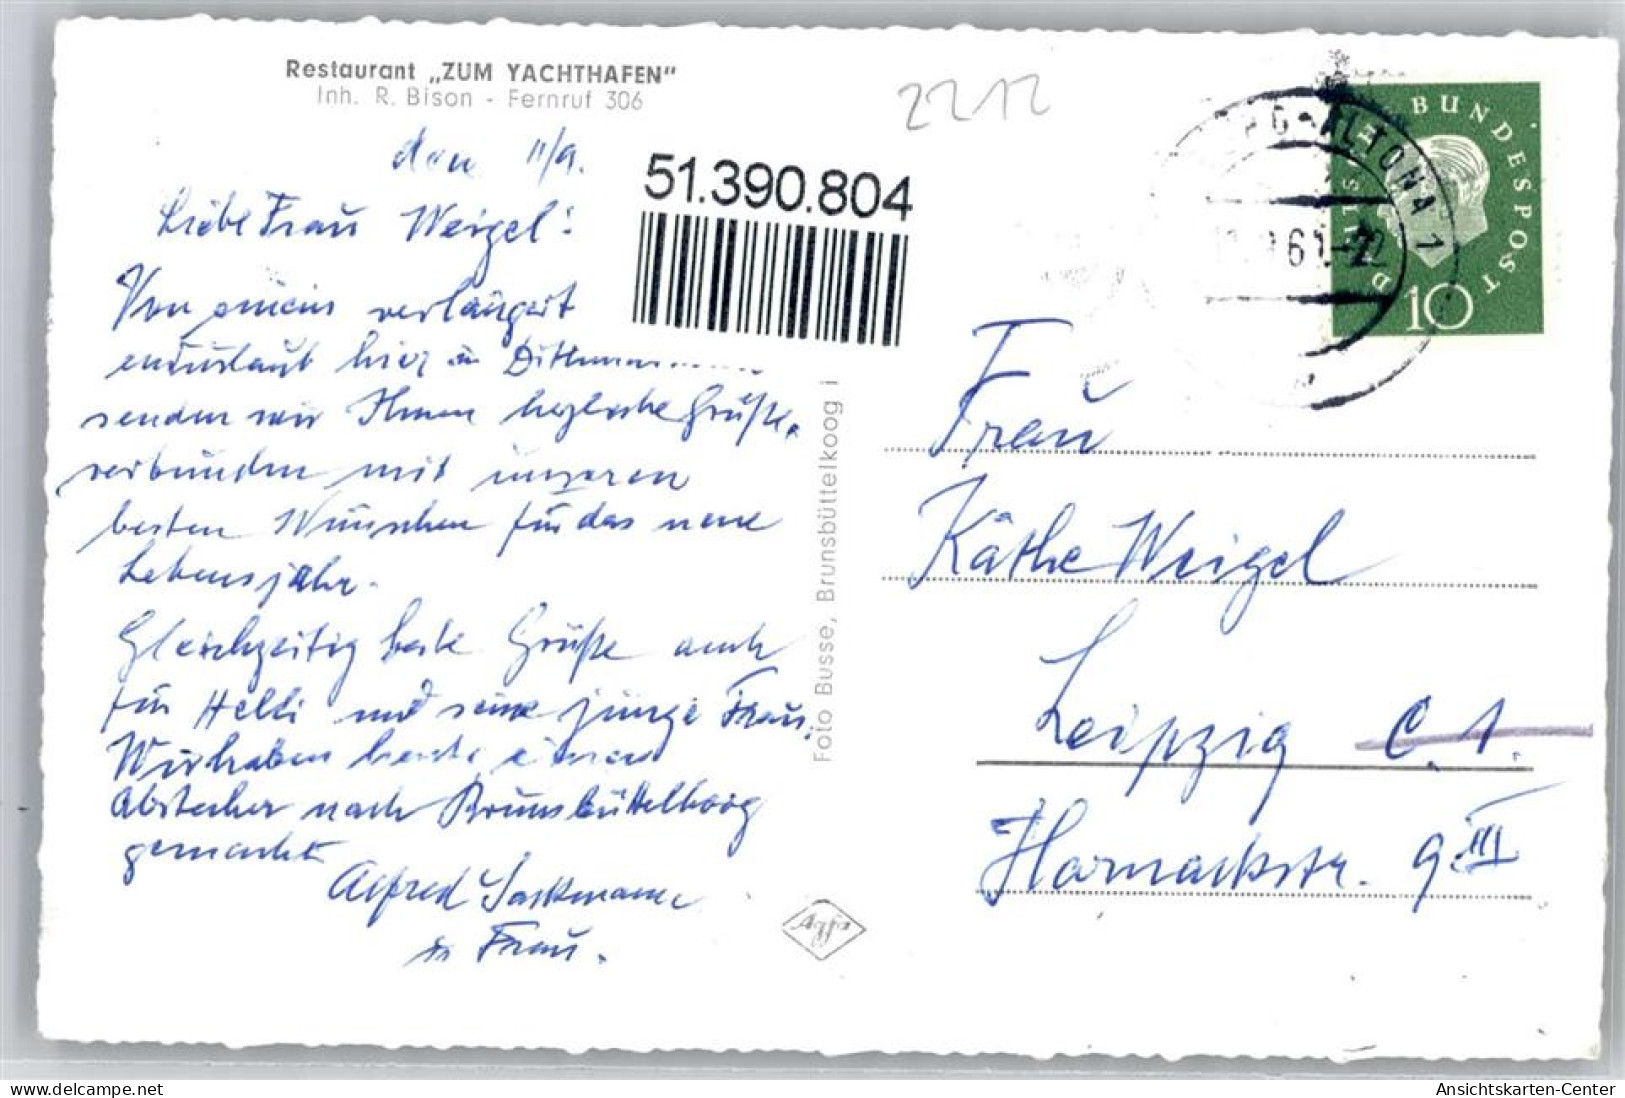 Restaurant „ZUM YACHTHAFEN"
Inh. R. Bison - Fernruf 306
2212
den 11/9.
51.390.804
Liebe Frau Weigel!
Von einem verlängert
enurlaub hier in Dithmar
senden wir Ihnen herzliche Grüße,
verbunden mit unseren
besten Wünschen für das neue
Lebensjahr.
Gleichzeitig beste Grüße auch
für Helli und seine junge Frau.
Wir haben heute einen
Abstecher nach Brunsbüttelkoog
gemacht
Alfred
u Frau.
Foto Busse, Brunsbüttelkoog
Agfa
DEUTSCHE BUNDESPOST
10
RG-ALTONA 1
61-22
Frau
Käthe Weigel
Leipzig C.1.
Harnackstr. 9 III
www.delcampe.net
Ansichtskarten-Center